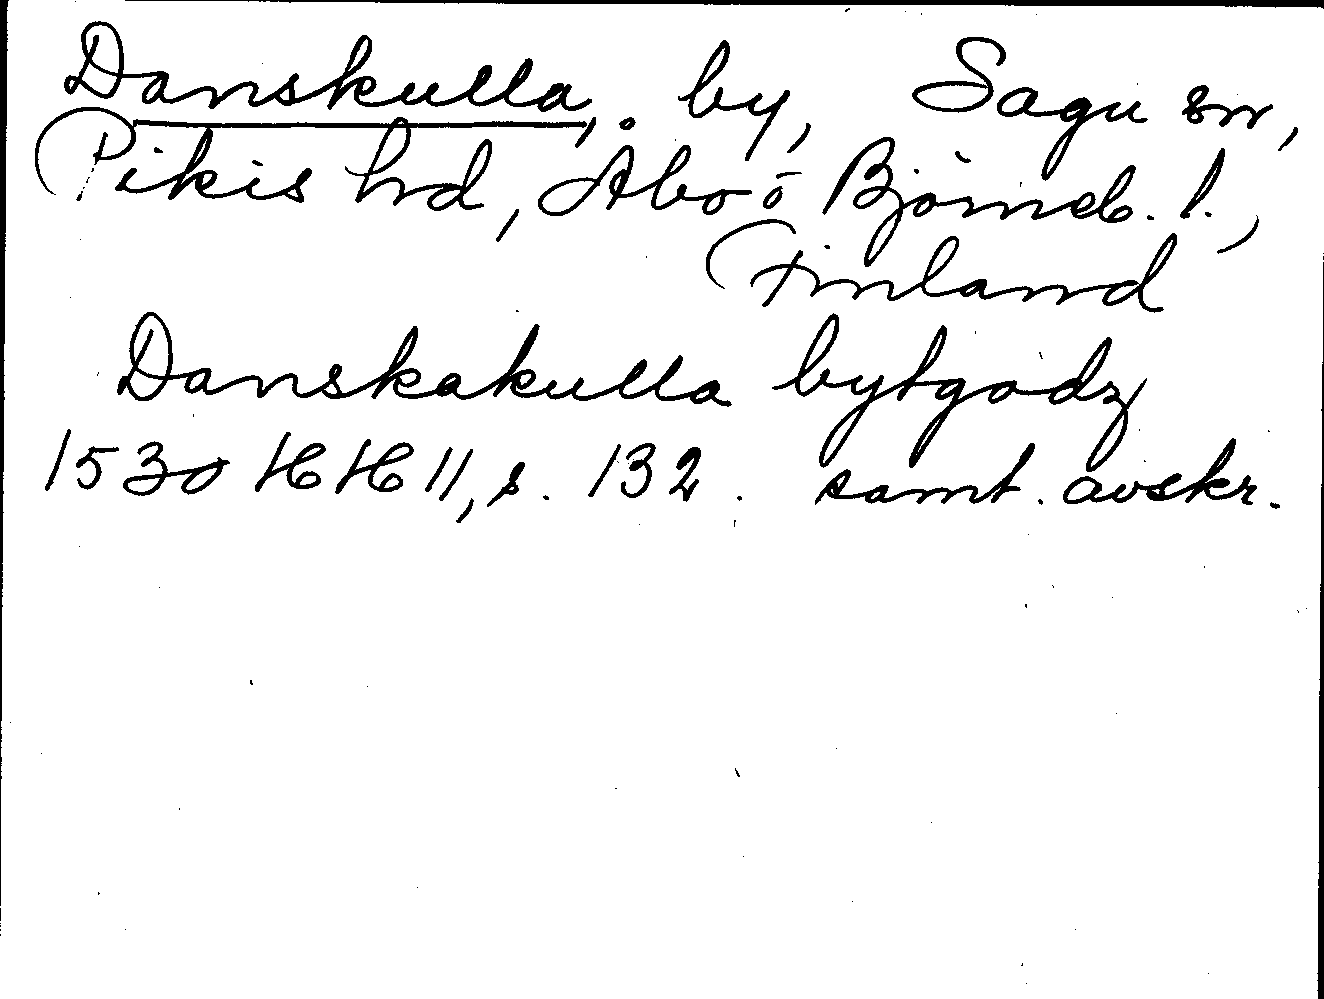 Danskulla, by, Sagu sn,
Pikis hd, Åbo o Björneb. l.,
Finland
Danskakulla bytgodz
1530 HH 11, s. 132. samt. avskr.